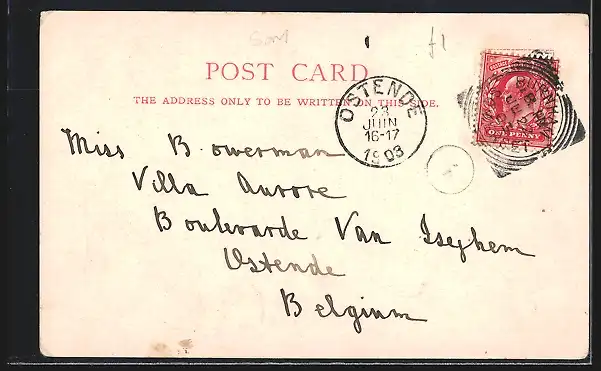 Som
£1
POST CARD
THE ADDRESS ONLY TO BE WRITTEN ON THIS SIDE.
OSTENDE
23
JUIN
16-17
1903
POSTAGE
ONE PENNY
Miss Bowerman
Villa Aurore
Boulevarde Van Iseghem
Ostende
Belgium